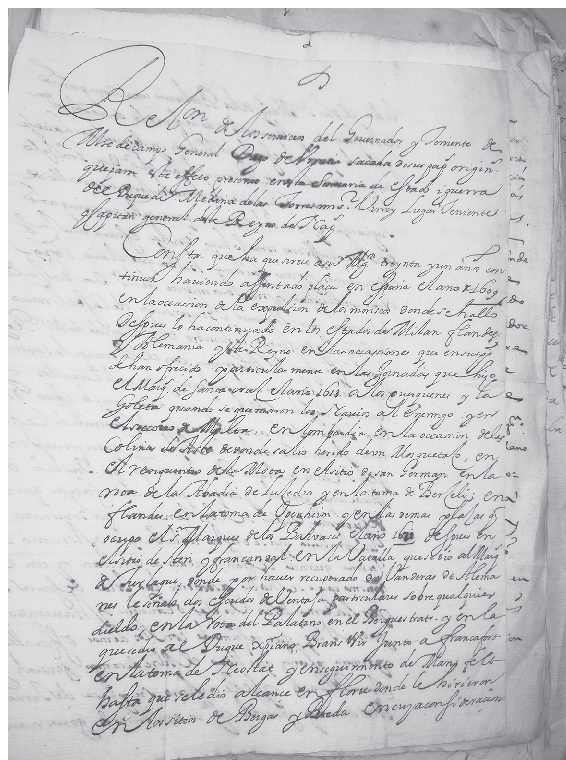 Relon de los servicios del Governador y Teniente de
Mre de campo General Diego de sacada de sus pap. origin.
que para este efeto presento en la secretaria de estado i guerra
del Duque de Medina de las Torres mi s.r Virrey Lugar Teniente
y Capitan general deste Reyno de Nap.
Consta que ha que sirve a su Mag.d treynta y un años con
tinuos haviendo assentado plaça en españa el año de 1609
en la ocasion de la expulsion de los moriscos donde se hallo
Despues lo ha continuado en los estados de Milan flandes
y Alemania y este Reyno en las ocasiones que en ese tpo
se han ofrecido y particularmente en las jornadas que hizo
el Marq. de santa cruz el año 1611 a los querquenes y la
Goleta quando se quemaron los navios al enemigo y en
el socorro de Malta, en lombardia en la ocasion de la
Colina de Aste de donde salio herido de un mosquetaço, en
el renquentro de la Mota en el sitio de san German en la
rota de la Abadia de Lusedio y en la toma de Berseli; en
flandes en la toma de y en las demas plaças q
ocupo el s.r Marques de la Balvases el año 1620 despues en
el sitio de Sten y francandal en la batalla que se dio al Marq.
de Turlaque, donde por haver recuperado dos vanderas de Alema
nes le señalo dos escudos de Ventaja particulares sobre qualquier
sueldo, en la rota del Palatino en el y en la
que se dio al Duque Xpiano Branshuic junto a francafort
en la toma de y en seguimiento de Mansfelt
hasta que se le dio alcance en floru donde le hirieron
en los sitios de Bergas y Breda en cuya consideracion